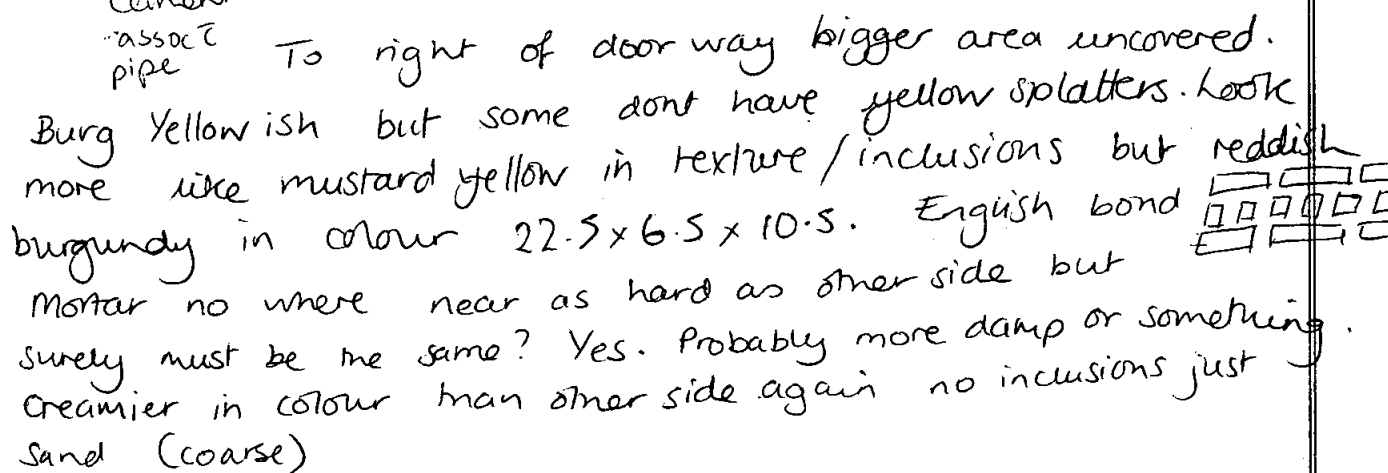 assoc c̄
pipe
To right of doorway bigger area uncovered.
Burg Yellowish but some dont have yellow splatters. Look
more like mustard yellow in texture/inclusions but reddish
burgundy in colour 22.5 x 6.5 x 10.5. English bond
Mortar no where near as hard as other side but
surely must be the same? Yes. Probably more damp or something.
Creamier in colour than other side again no inclusions just
sand (coarse)